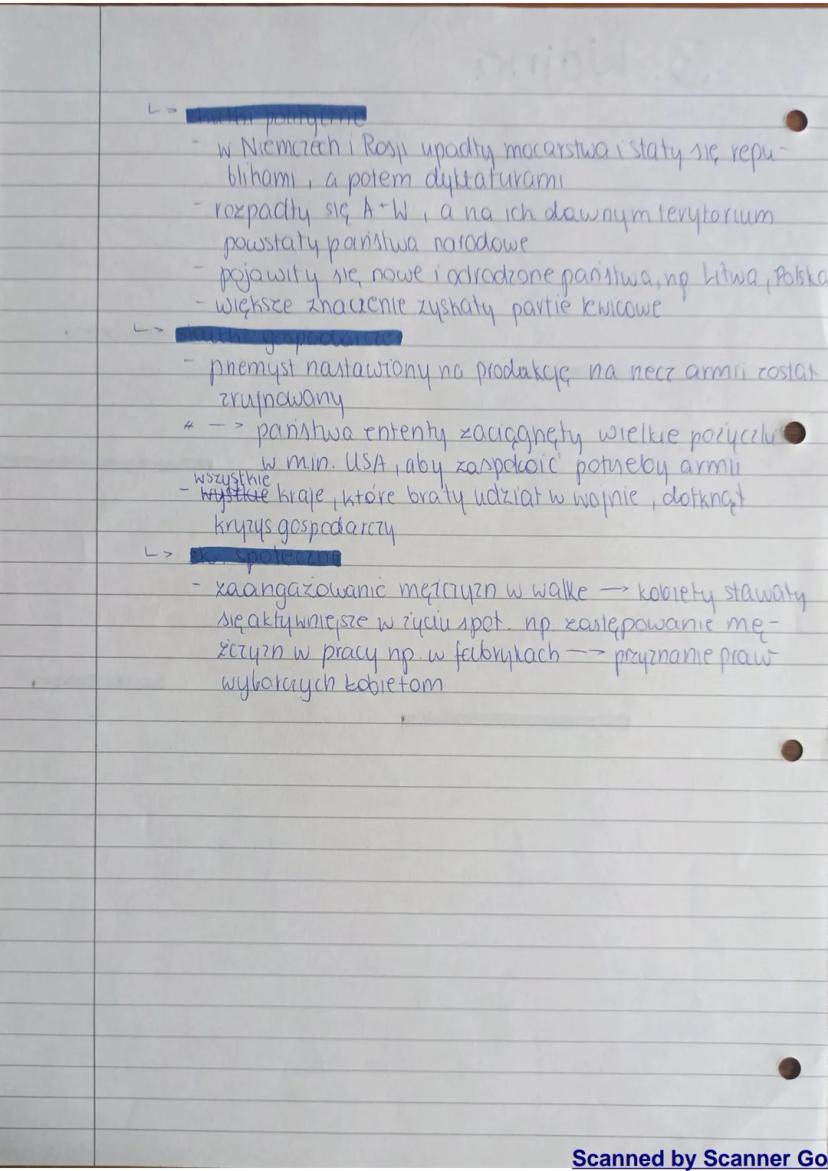 ↳ skutki polityczne
- w Niemczech i Rosji upadły mocarstwa i stały się repu-
blikami, a potem dyktaturami
- rozpadły się A-W, a na ich dawnym terytorium
powstały państwa narodowe
- pojawiły się nowe i odrodzone państwa, np Litwa, Polska
- większe znaczenie zyskały partie lewicowe
↳ skutki gospodarcze
- przemysł nastawiony na produkcję na rzecz armii został
zrujnowany
* -> państwa ententy zaciągnęły wielkie pożyczki
w min. USA, aby zaspokoić potrzeby armii
wszystkie
- wystkie kraje, które brały udział w wojnie, dotknął
kryzys gospodarczy
↳ sk. społeczne
- zaangażowanie mężczyzn w walke -> kobiety stawały
się aktywniejsze w życiu społ. np zastępowanie mę-
żczyzn w pracy np w fabrykach -> przyznanie praw
wyborczych kobietom
Scanned by Scanner Go